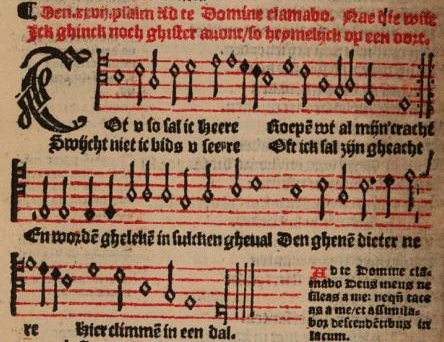 ¶ Den .xxvij. psalm Ad te Domine clamabo. Nae die wise
Jck ghinck noch ghister auont / so heymelijck op een oort.
Tot v so sal ic Heere Roepē wt al mijn cracht
Swijcht niet ic bids v seere Oft ick sal zijn gheacht
En wordē ghelekē in sulcken gheual Den ghenē dieter ne
re hier climmē in een dal.
Ad te Domine cla-
mabo Deus meus ne
sileas a me: neqñ tace
as a me / et assimila-
bor descendētibus in
lacum.